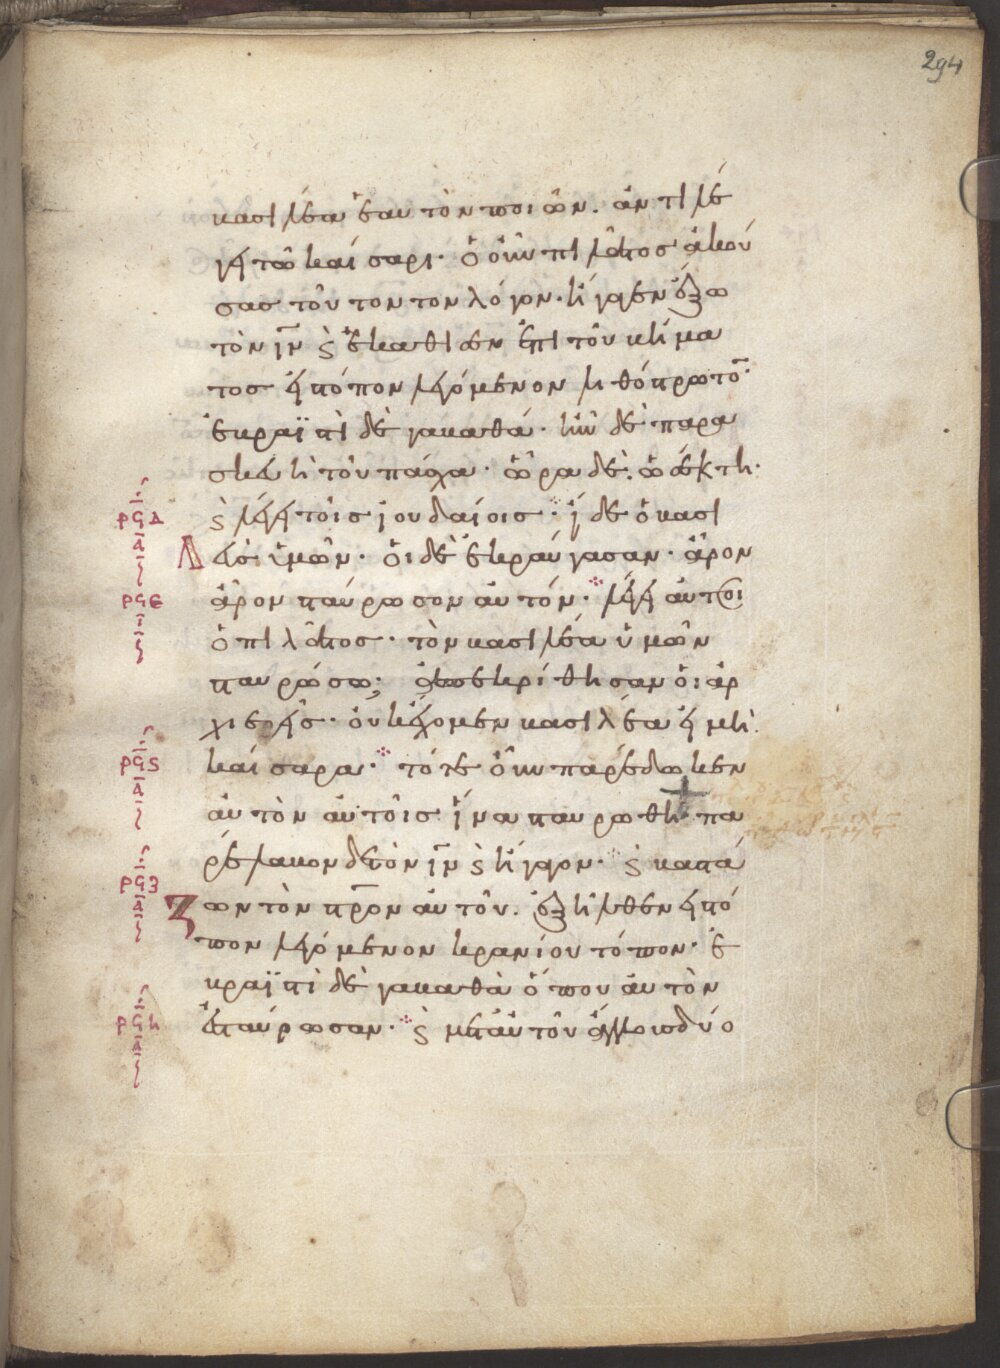 294
βασιλέα ἑαυτὸν ποιῶν. ἀντιλέ
γει τῶ καίσαρι. ὁ οὖν πιλᾶτος ἀκού
σας τοῦτον τὸν λόγον. ἤγαγεν ἔξω
τὸν ιν̄ ϛ ἐκάθισεν ἐπὶ τοῦ βήμα
τος εἰς τόπον λεγόμενον λιθόστρωτον.
ἑβραϊστὶ δὲ γαβαθά. ἦν δὲ παρα
σκευὴ τοῦ πάσχα. ὥρα δὲ. ὡσεὶ ἕκτη.
ϛ λέγει τοῖς ἰουδαίοις. ἴδε ὁ βασι
ρϟδ
α
λεὺς ὑμῶν. οἱ δὲ ἐκραύγασαν. ἆρον
ρϟε
ἆρον σταύρωσον αὐτόν. λέγει αὐτοῖς
ὁ πιλᾶτος. τὸν βασιλέα ὑμῶν
σταυρώσω; ἀπεκρίθησαν οἱ ἀρ
χιερεῖς. οὐκ ἔχομεν βασιλέα εἰ μὴ
ρϟϛ
α
καίσαρα. τότε οὖν παρέδωκεν
αὐτὸν αὐτοῖς ἵνα σταυρωθῆ. πα
ρέλαβον δὲ τὸν ιν̄ ϛ ἤγαγον. ϛ βαστά
ρϟζ
α
ζων τὸν στρ̄ον αὐτοῦ. ἐξῆλθεν εἰς τό
πον λεγόμενον κρανίου τόπον. ἑ
βραϊστὶ δὲ γαβαθὰ ὅπου αὐτὸν
ρϟη
α
ἐσταύρωσαν. ϛ μετ αὐτοῦ ἄλλους δύο